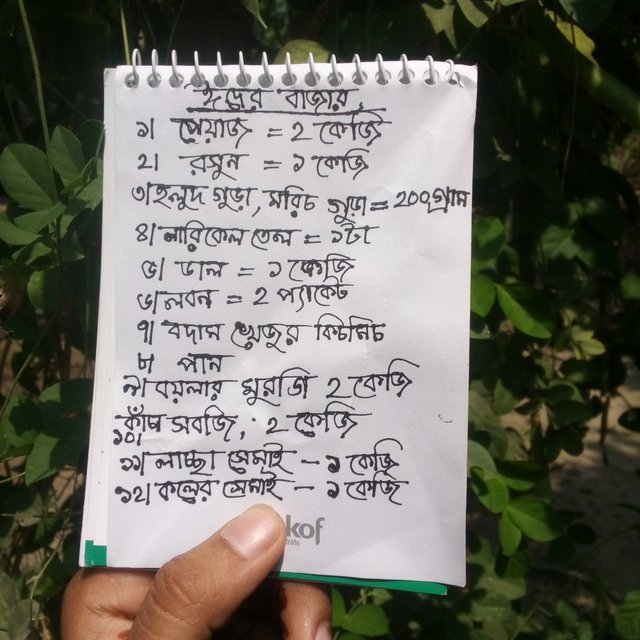 ঈদের বাজার
১। পেয়াজ = 2 কেজি
২। রসুন = ১ কেজি
৩। হলুদ গুড়া, মরিচ গুড়া = 200 গ্রাম
৪। নারিকেল তেল = ১টা
৫। ডাল = ১ কেজি
৬। লবন = 2 প্যাকেট
৭। বদাম খেজুর কিচমিচ
৮। পান
৯। বয়লার মুরজি 2 কেজি
১০। কাঁচা সবজি, 2 কেজি
১১। লাচ্ছা সেমাই – ১ কেজি
১২। কলের সেমাই – ১ কেজি
kof
trate